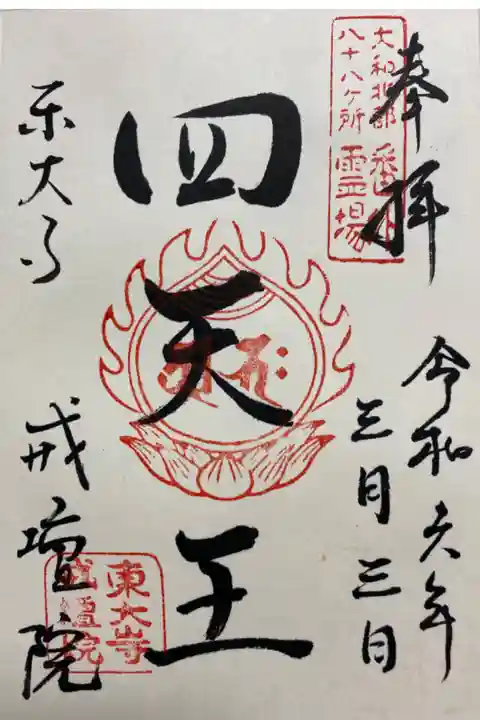 奉拝
大和北部
八十八ヶ所
霊場
令和六年
三月三日
四天王
東大寺
戒壇院
東大寺
戒壇院